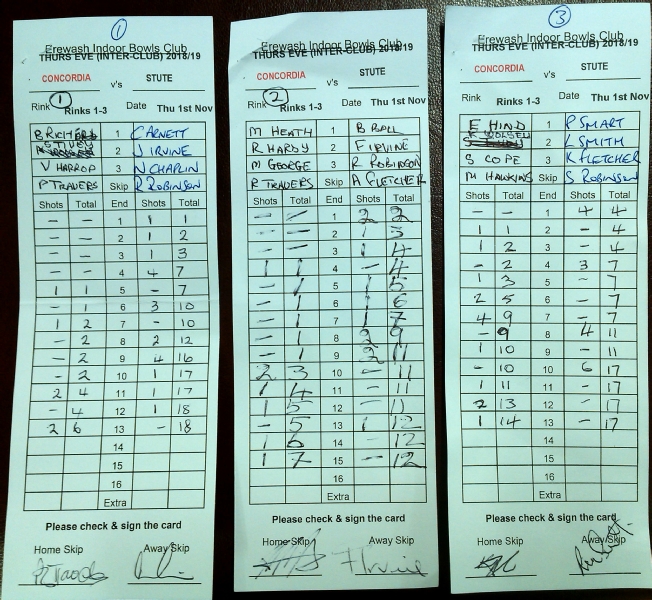 1
Erewash Indoor Bowls Club
THURS EVE (INTER-CLUB) 2018/19
CONCORDIA v's STUTE
Rink 1 Rinks 1-3 Date Thu 1st Nov
1 C ARNETT
2 J IRVINE
V HARROP 3 N CHAPLIN
P TRAVERS Skip R ROBINSON
Shots Total End Shots Total
- - 1 1 1
- - 2 1 2
- - 3 1 3
- - 4 4 7
1 1 5 - 7
- 1 6 3 10
1 2 7 - 10
- 2 8 2 12
- 2 9 4 16
- 2 10 1 17
2 4 11 1 17
- 4 12 1 18
2 6 13 - 18
14
15
16
Extra
Please check & sign the card
Home Skip Away Skip
2
Erewash Indoor Bowls Club
THURS EVE (INTER-CLUB) 2018/19
CONCORDIA v's STUTE
Rink 2 Rinks 1-3 Date Thu 1st Nov
M HEATH 1 B BALL
R HARDY 2 F IRVINE
M GEORGE 3 R ROBINSON
R TRAVERS Skip A FLETCHER
Shots Total End Shots Total
- - 1 2 2
- - 2 1 3
- - 3 1 4
1 1 4 - 4
- 1 5 1 5
- 1 6 1 6
- 1 7 1 7
- 1 8 2 9
- 1 9 2 11
2 3 10 - 11
1 4 11 - 11
1 5 12 - 11
- 5 13 1 12
1 6 14 - 12
1 7 15 - 12
16
Extra
Please check & sign the card
Home Skip Away Skip
F Irvine
3
Erewash Indoor Bowls Club
THURS EVE (INTER-CLUB) 2018/19
CONCORDIA v's STUTE
Rink Rinks 1-3 Date Thu 1st Nov
E HIND 1 P SMART
2 L SMITH
S COPE 3 K FLETCHER
M HAWKINS Skip S ROBINSON
Shots Total End Shots Total
- - 1 4 4
1 1 2 - 4
1 2 3 - 4
- 2 4 3 7
1 3 5 - 7
2 5 6 - 7
4 9 7 - 7
- 9 8 4 11
1 10 9 - 11
- 10 10 6 17
1 11 11 - 17
2 13 12 - 17
1 14 13 - 17
14
15
16
Extra
Please check & sign the card
Home Skip Away/Skip